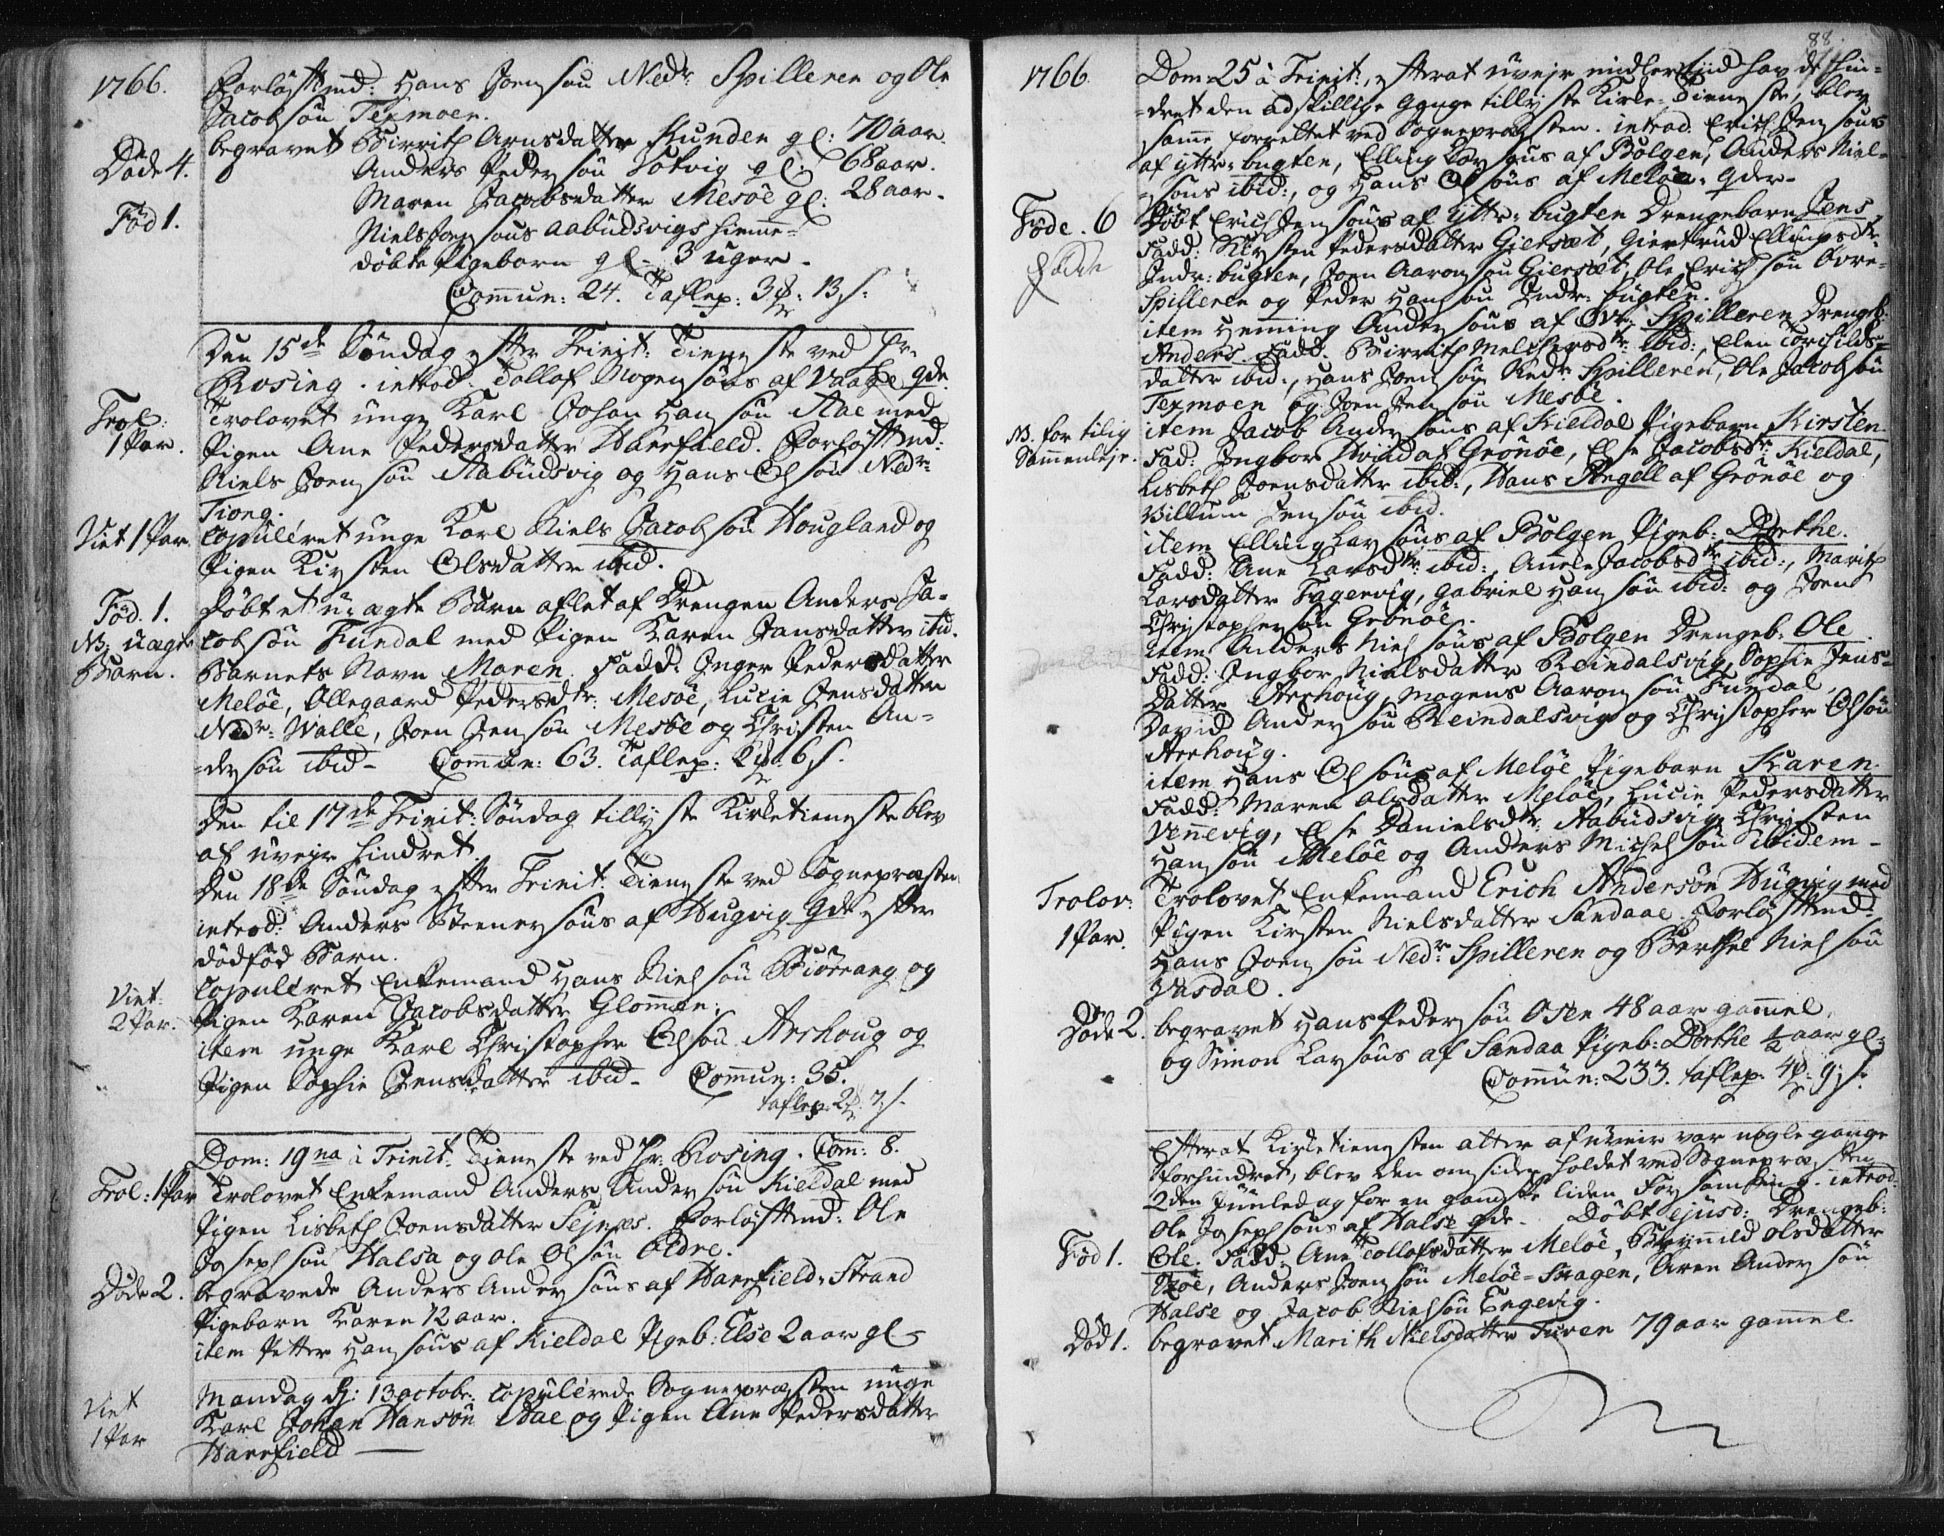 1766.
Forløftmd: Hans Joensøn Nedr Spilleren og Ole
Jacobsøn Texmoen.
Døde 4.
begravet Birrith Arnsdatter Kunden gl: 70 aar.
Anders Pedersøn Sotvig gl: 68 aar.
Maren Jacobsdatter Mesøe gl: 28 aar.
Fød 1.
Niels Joensøns Aabudsvigs hiemme-
døbte Pigebarn gl- 3 uger.
Commun: 24. Taflep: 3 : 13 s:
Den 15de Søndag efter Trinit: Tieneste ved Hr
Rosing. introd. Tollof Mogensøns af Vaage qde.
Trol: 1 Par.
Trolovet unge Karl Johan Hansøn Aae med
Pigen Ane Pedersdatter Harefield. Forløftmd:
Niels Joensøn Aabudsvig og Hans Olsøn Nedr
Tiong.
Viet 1 Par.
copuleret unge Karl Niels Jacobsøn Hougland og
Pigen Kirsten Olsdatter ibid.
Fød. 1.
NB uægte Barn.
Døbt et uægte Barn aflet af Drengen Anders Ja-
cobsøn Fundal med Pigen Karen Jansdatter ibd.
Barnets Navn Maren. Fadd: Inger Pedersdatter
Meløe, Ollegaard Pedersdtr: Mesøe, Lucie Jensdatter
Nedr: Walle, Joen Jensøn Mesøe og Christen An-
dersøn ibid- Commun: 63. Taflep: 2 : 6 s.
Den til 17de Trinit: Søndag tillyste Kirketieneste blev
af uvejr hindret.
Den 18de Søndag efter Trinit: Tieneste ved Sognepræsten
introd: Anders Steenersøns af Hugvig qde efter
dødfød Barn.
Viet: 2 Par.
copuleret Enkemand Hans Nielsøn Biørnang og
Pigen Karen Jacobsdatter Glommen:
item unge Karl Christopher Olsøn Arhoug og
Pigen Sophie Jensdatter ibid- Commun: 35.
taflep: 2 : 7 s-
Dom: 19na à Trinit: Tieneste ved Hr: Rosing. Com: 8.
Trol: 1 Par
Trolovet Enkemand Anders Andersøn Kieldal med
Pigen Lisbeth Joensdatter Sejnæs. Forløftmd: Ole
Josephsøn Halsa og Ole Olsøn Oldre.
Døde 2.
begravede Anders Andersøns af Harefield-Strand
Pigebarn Karen 12 aar.
item Petter Hansøns af Kieldal Pigeb: Else 2 aar gl-
Viet 1 Par
Mandag d: 13 octobr. copulerede Sognepræsten unge
Karl Johan Hansøn Aae og Pigen Ane Pedersdatter
Harefield
88.
1766
Dom 25 à Trinit:, efter at uvejr midlertiid havde hin-
dret den adskillige gange tillyste Kirke-Tieneste, blev
samme forrettet ved Sognepræsten. introd. Erich Jensøns
af ytter-bugten, Elling Larsøns af Bolgen, Anders Niel-
søns ibid:, og Hans Olsøns af Meløe. qder-
Føde. 6
Døbt Erich Jensøns af ytter: bugten Drengebarn Jens
Fadd: Kirsten Pedersdatter Giersæt, Giertrud Ellingsdtr
Indr: bugten, Joen Aaronsøn Giersæt, Ole Erichsøn Øvre-
Spilleren og Peder Hansøn Indr: bugten.
item Henning Andersøns af Øvr: Spilleren Drengeb:
Anders. Fadd. Birrith Melchersdtr: ibid:, Elen Torchilds-
datter ibid:, Hans Joensøn Nedr Spilleren, Ole Jacobsøn
Texmoen og Joen Jensøn Mesøe.
NB. for tilig Sammenleje.
item Jacob Andersøns af Kieldal Pigebarn Kirsten
Fad: Ingbor Hvid af Grønøe, Else Jacobsdtr: Kieldal,
Lisbeth Joensdatter ibid:, Hans Angell af Grønøe og
Villum Jensøn ibid.
item Elling Larsøns af Bolgen Pigeb: Dorthe.
Fadd: Ane Larsdtr: ibid:, Anele Jacobsdtr ibid:, Marith
Larsdatter Fagervig, Gabriel Hansøn ibid: og Joen
Christophersøn Grønøe.
item Anders Nielsøns af Bolgen Drengeb: Ole.
Fadd: Ingbor Nielsdatter Reindalsvig, Sophie Jens-
datter Arhoug, Mogens Aaronsøn Fundal,
David Andersøn Reindalsvig og Christopher Olsøn
Arhoug.
item Hans Olsøns af Meløe Pigebarn Karen.
Fadd: Maren Olsdatter Meløe, Lucie Pedersdatter
Vennevig, Else Danielsdtr: Aabudsvig, Christen
Hansøn Meløe og Anders Michelsøn ibidem-
Trolov: 1 Par.
Trolovet Enkemand Erich Andersøn Hugvig med
Pigen Kirsten Nielsdatter Sandaae. Forløftmd:
Hans Joensøn Nedr Spilleren og Berthel Nielsøn
Vasdal.
Døde 2.
begravet Hans Pedersøn Osen 48 aar gammel.
og Simon Larsøns af Sandaa Pigeb: Dorthe ½ aar gl-
Commun: 233. taflep: 4 : 9 s.
Efter at Kirketienesten atter af uveir var nogle gange
forhindret, blev den omsider holdet ved Sognepræsten
2den Juuledag for en ganske liden Forsamling. introd:
Ole Josephsøns af Halse qde. Døbt ejusd: Drengeb:
Fød 1.
Ole. Fadd: Ane Tollofsdatter Meløe, Brynnild Olsdatter
Anders Joensøn Meløe-Skagen, Aren Andersøn
Halse og Jacob Nielsøn Engevig.
Død 1.
begravet Marith Nielsdatter Turen 79 aar gammel.